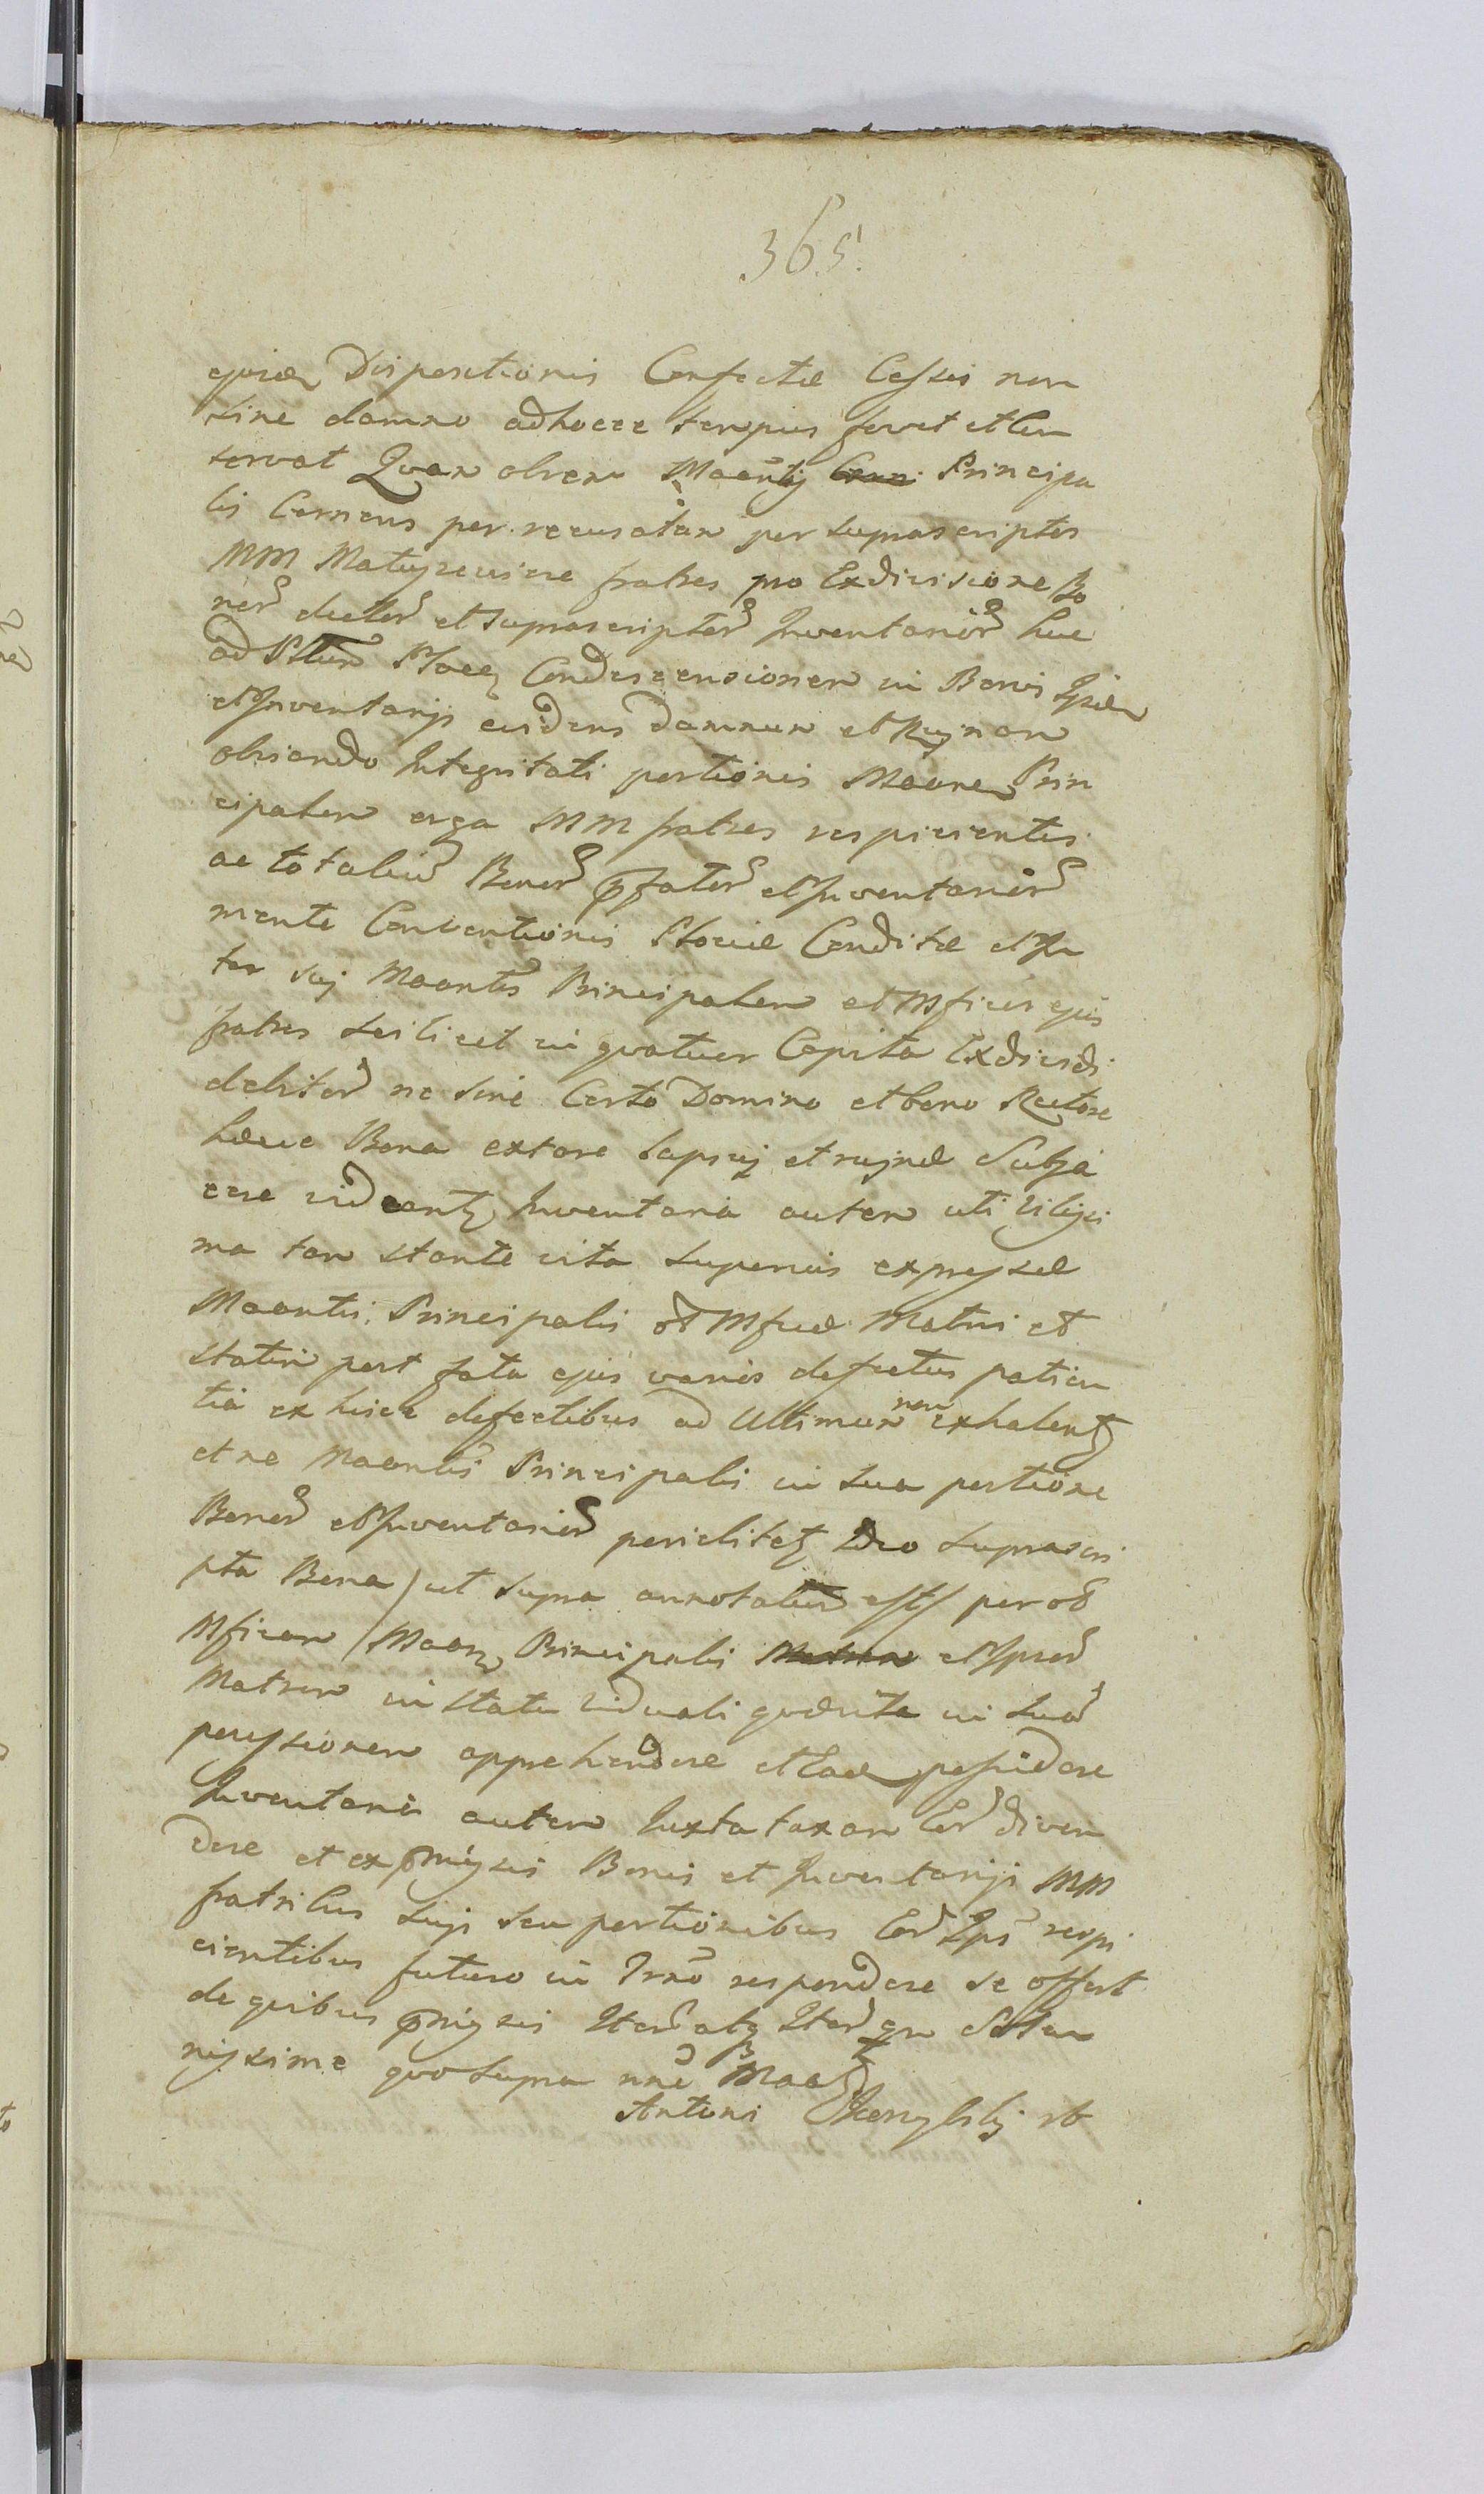 365.
ejusdem Dispositionis Confectæ Cessis non
sine damno adhocce tempus fovet et Con
servat Quam obrem Maantij Principa
lis Cernens per recusatam per suprascriptos
MM Matuszewicze fratres pro Exdivisione Bo
nor dictor et suprascriptor Inventarior huc
ad Condescensionem in Bonis
et Inventarijs evidens damnum et Ruinam
obviando Integritati portionis Maane Prin
cipalem erga MM fratres respicientis
ac totalium Bonor pfator et Inventarior
mente Conventionis Conditæ et In
ter suj Maantem Principalem et Mficos ejus
fratres scilicet in quatuor Capita Exdividi
debitor ne sine Certo Domino et bono Rectore
hæcce Bona extare lapsuj et rujnæ Subja
cere videantur Inventaria autem uti vilissi
ma tam stante vita superius expressæ
Maantis Principalis ob Mficæ Matris et
statim post fata ejus varios defectus patien
tia ex hisce defectibus ad Ultimum non exhalent
et ne Maantis Principalis in sua portione
Bonor et Inventarior periclitet Ideo suprascri
pta Bona / ut supra annotatum est / per ob
Mficam / Maan Principalis et Ipsor
Matrem in statu viduali quæsita in suam
possessionem apprehendere et Eadem possidere
Inventaria autem Iuxta taxam Eor diven
dere et ex pmissis Bonis et Inventarijs MM
fratribus suis seu portionibus Eor Ips respi
cientibus futuro in respondere se offert
de quibus pmissis Iter atq Iter qm Solen
nissime quo supra nne Maa
Antoni